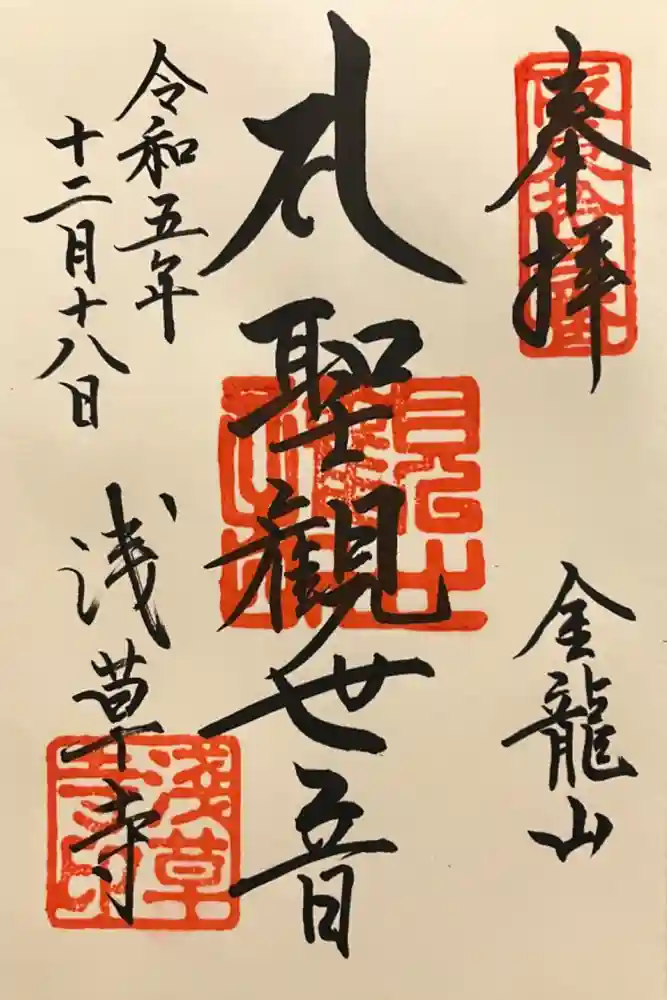 奉拝
金龍山
聖観世音
令和五年
十二月十八日
浅草寺
淺草